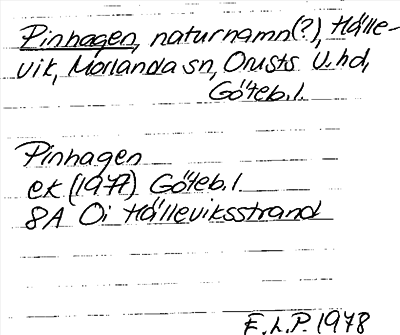 Pinhagen, naturnamn(?), Hälle-
vik, Morlanda sn, Orusts V. hd,
Göteb. l.
Pinhagen
ek (1977) Göteb. l
8A Oi Hälleviksstrand
F.L.P. 1978